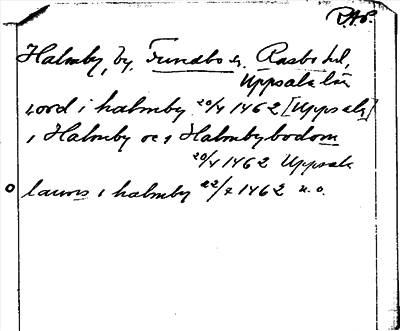 RAp.
Halmby, by, Fundbo sn. Rasbo hd,
Uppsala län
iord i halmby 20/4 1462 [Uppsala]
i Halmby oc i Halmbybodom
20/4 1462 Uppsala
lauris i halmby 22/7 1462 u.o.